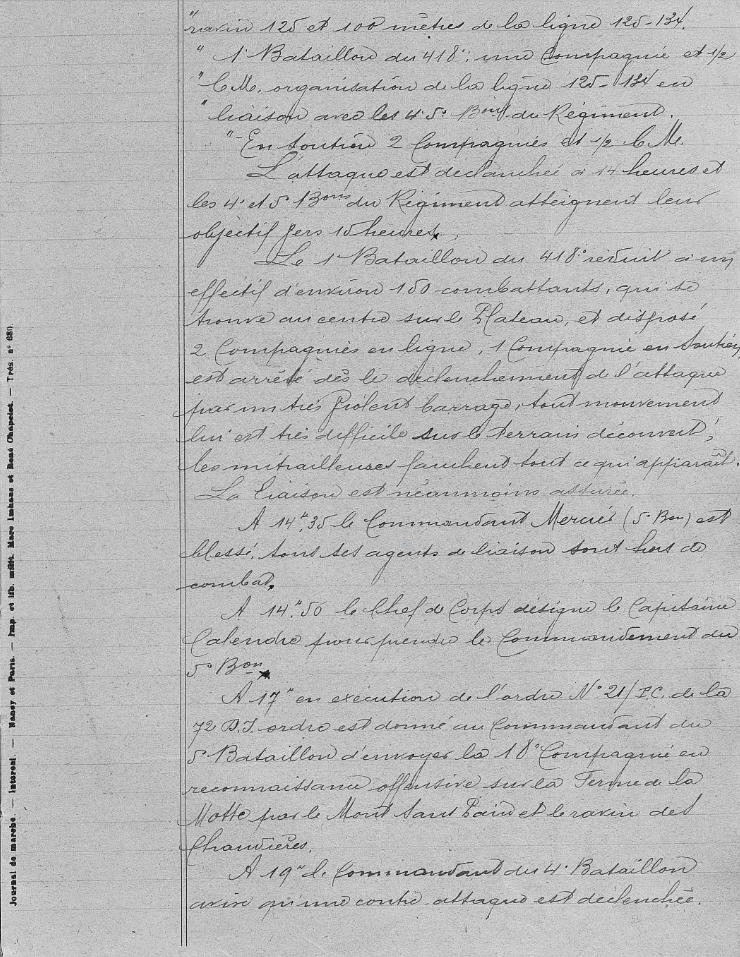 "ravin 125 et 100 mètres de la ligne 125-134.
" 1er Bataillon du 418e: une Compagnie et 1/2
"C.M. organisation de la ligne 125-134 en
"liaison avec les 4e 5e Bons du Régiment.
"En soutien 2 Compagnies et 1/2 C.M.
L'attaque est déclanchée à 14 heures et
les 4e et 5e Bons du Régiment atteignent leur
objectif vers 15 heures.
Le 1er Bataillon du 418e réduit à un
effectif d'environ 150 combattants, qui se
trouve au centre sur le Plateau, et disposé
2 Compagnies en ligne, 1 Compagnie en Soutien,
est arrêté dès le déclenchement de l'attaque
par un très violent barrage, tout mouvement
lui est très difficile sur le terrain découvert;
les mitrailleuses fauchent tout ce qui apparaît.
La liaison est néanmoins assurée.
A 14h35 le Commandant Mercié (5e Bon) est
blessé, tous ses agents de liaison sont hors de
combat.
A 14h50 le Chef de Corps désigne le Capitaine
Calendre pour prendre le Commandement du
5e Bon
A 17h en exécution de l'ordre N° 21/P.C. de la
72 D.I. ordre est donné au Commandant du
5e Bataillon d'envoyer la 18e Compagnie en
reconnaissance offensive sur la Ferme de la
Motte par le Mont Sans Pain et le ravin des
Chauvières.
A 19h le Commandant du 4e Bataillon
avise qu'une contre attaque est déclenchée.
Journal de marche. — Intérieur. — Nancy et Paris. — Imp. et lib. milit. Marc Imhaus et René Chapelot. — Trés. n° 680.